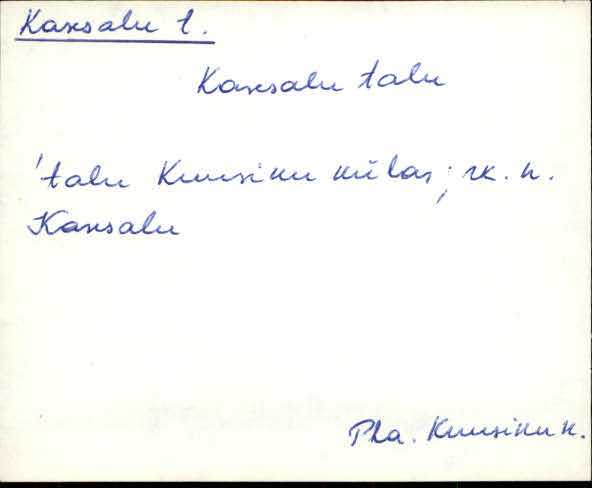 Kaxsalu t.
Kaxsalu talu
'talu Kuusiku külas; rk. n.
Kaxsalu
Pha. Kuusiku k.